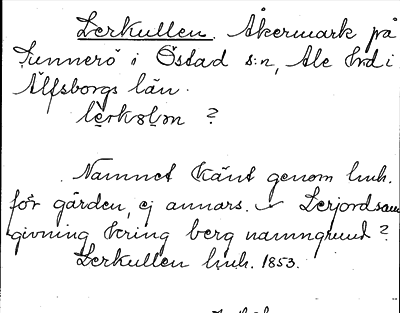 Lerkullen. Åkermark på
Tunnerö i Östad s:n, Ale hrd i
Älfsborgs län.
?
Namnet känt genom lmh.
för gården, ej annars. Lerjord
givning kring berg namngrund?
Lerkullen lmh. 1853.